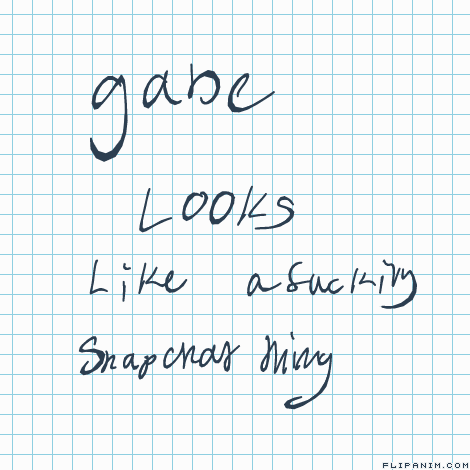 gabe
LOOKS
Like a sucking
Snapchat thing
FLIPANIM.COM